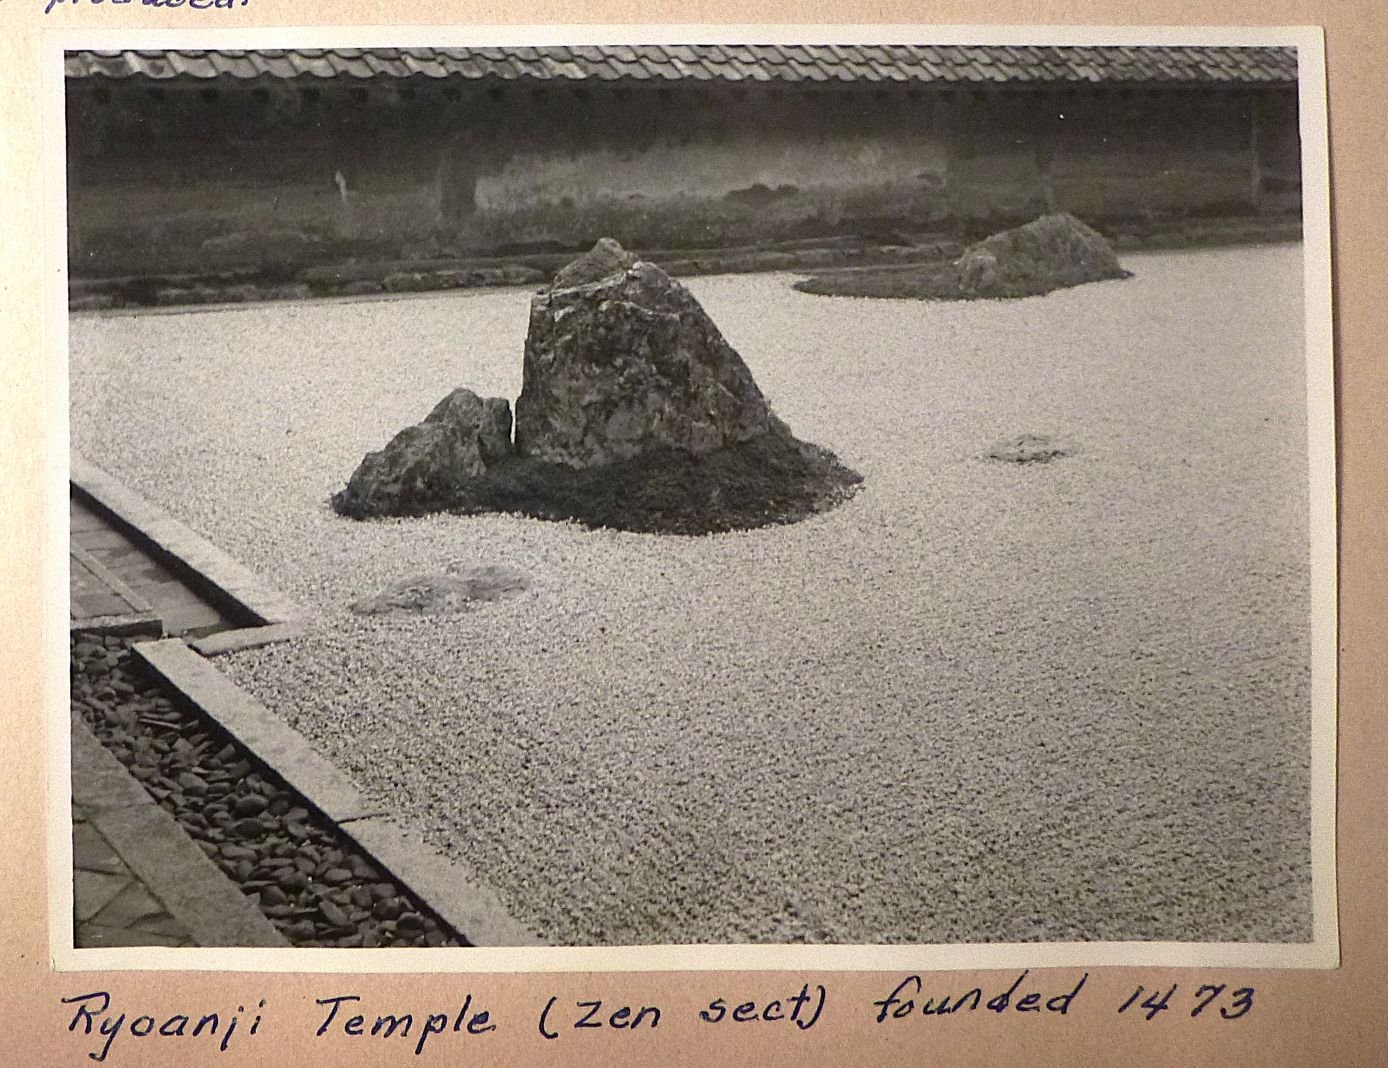 produced.
Ryoanji Temple (Zen sect) founded 1473